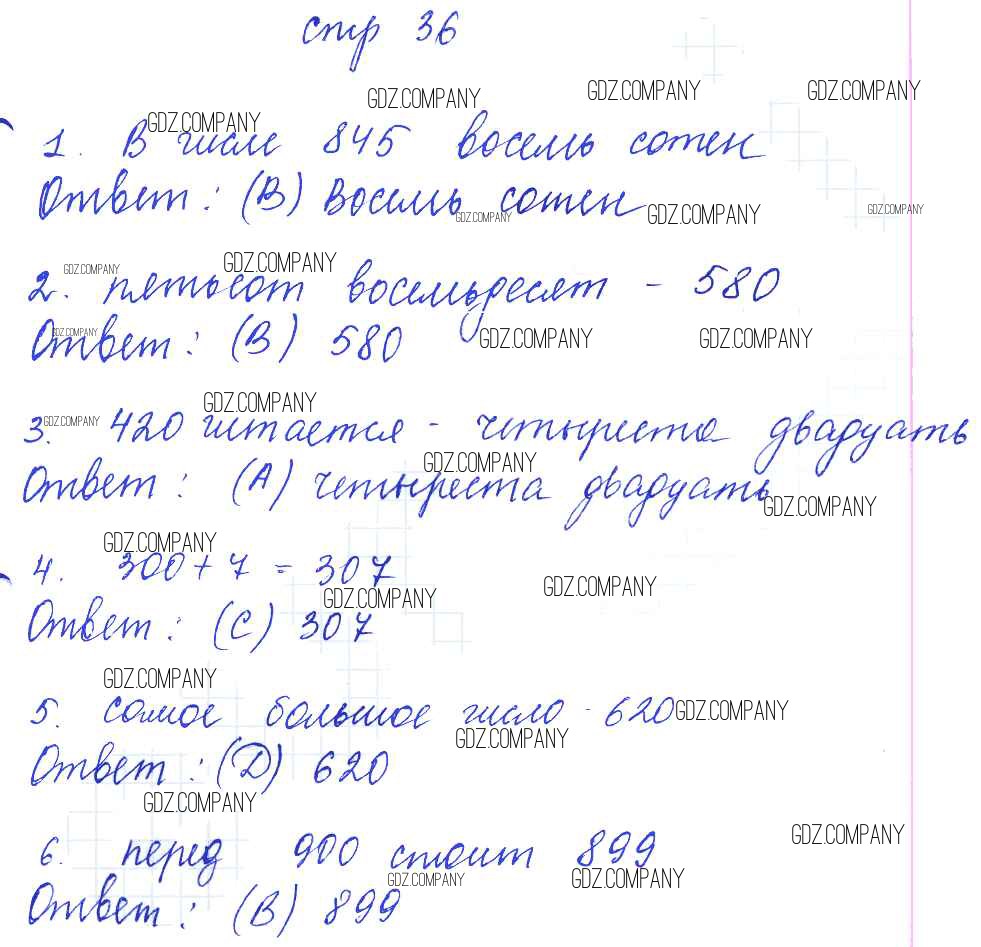 стр 36
GDZ.COMPANY GDZ.COMPANY GDZ.COMPANY
GDZ.COMPANY
1. В числе 845 восемь сотен
Ответ: (В) Восемь сотен
GDZ.COMPANY GDZ.COMPANY GDZ.COMPANY
GDZ.COMPANY GDZ.COMPANY
2. пятьсот восемьдесят - 580
Ответ: (В) 580
GDZ.COMPANY GDZ.COMPANY GDZ.COMPANY
GDZ.COMPANY GDZ.COMPANY
3. 420 читается - четыреста двадцать
GDZ.COMPANY
Ответ: (А) четыреста двадцать
GDZ.COMPANY
GDZ.COMPANY
4. 300 + 7 = 307
GDZ.COMPANY GDZ.COMPANY
Ответ: (С) 307
GDZ.COMPANY
5. самое большое число - 620
GDZ.COMPANY
GDZ.COMPANY
Ответ: (Д) 620
GDZ.COMPANY
GDZ.COMPANY
6. перед 900 стоит 899
GDZ.COMPANY GDZ.COMPANY
Ответ: (В) 899